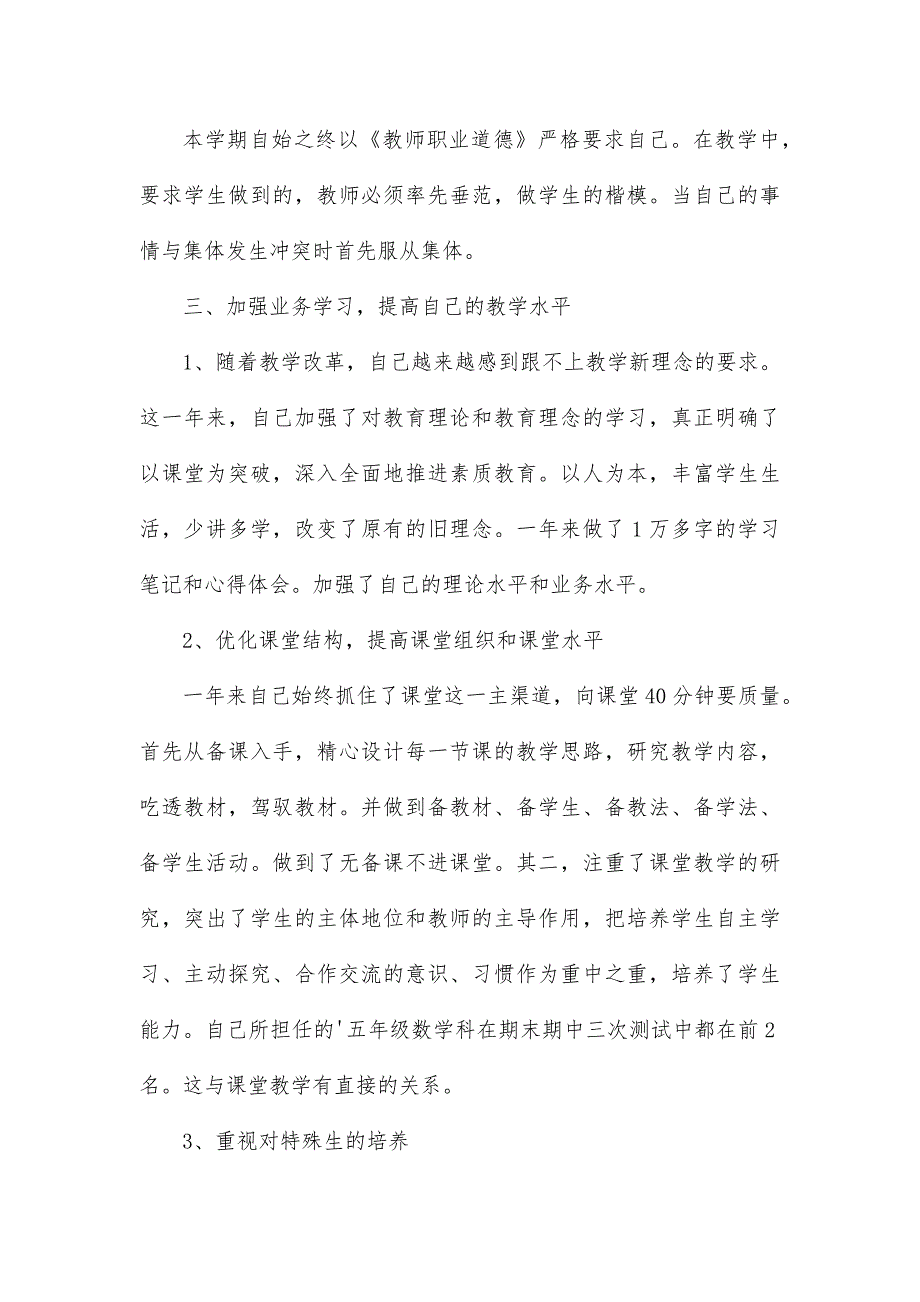 本学期自始之终以《教师职业道德》严格要求自己。在教学中，
要求学生做到的，教师必须率先垂范，做学生的楷模。当自己的事
情与集体发生冲突时首先服从集体。
三、加强业务学习，提高自己的教学水平
1、随着教学改革，自己越来越感到跟不上教学新理念的要求。
这一年来，自己加强了对教育理论和教育理念的学习，真正明确了
以课堂为突破，深入全面地推进素质教育。以人为本，丰富学生生
活，少讲多学，改变了原有的旧理念。一年来做了 1 万多字的学习
笔记和心得体会。加强了自己的理论水平和业务水平。
2、优化课堂结构，提高课堂组织和课堂水平
一年来自己始终抓住了课堂这一主渠道，向课堂 40 分钟要质量。
首先从备课入手，精心设计每一节课的教学思路，研究教学内容，
吃透教材，驾驭教材。并做到备教材、备学生、备教法、备学法、
备学生活动。做到了无备课不进课堂。其二，注重了课堂教学的研
究，突出了学生的主体地位和教师的主导作用，把培养学生自主学
习、主动探究、合作交流的意识、习惯作为重中之重，培养了学生
能力。自己所担任的'五年级数学科在期末期中三次测试中都在前 2
名。这与课堂教学有直接的关系。
3、重视对特殊生的培养